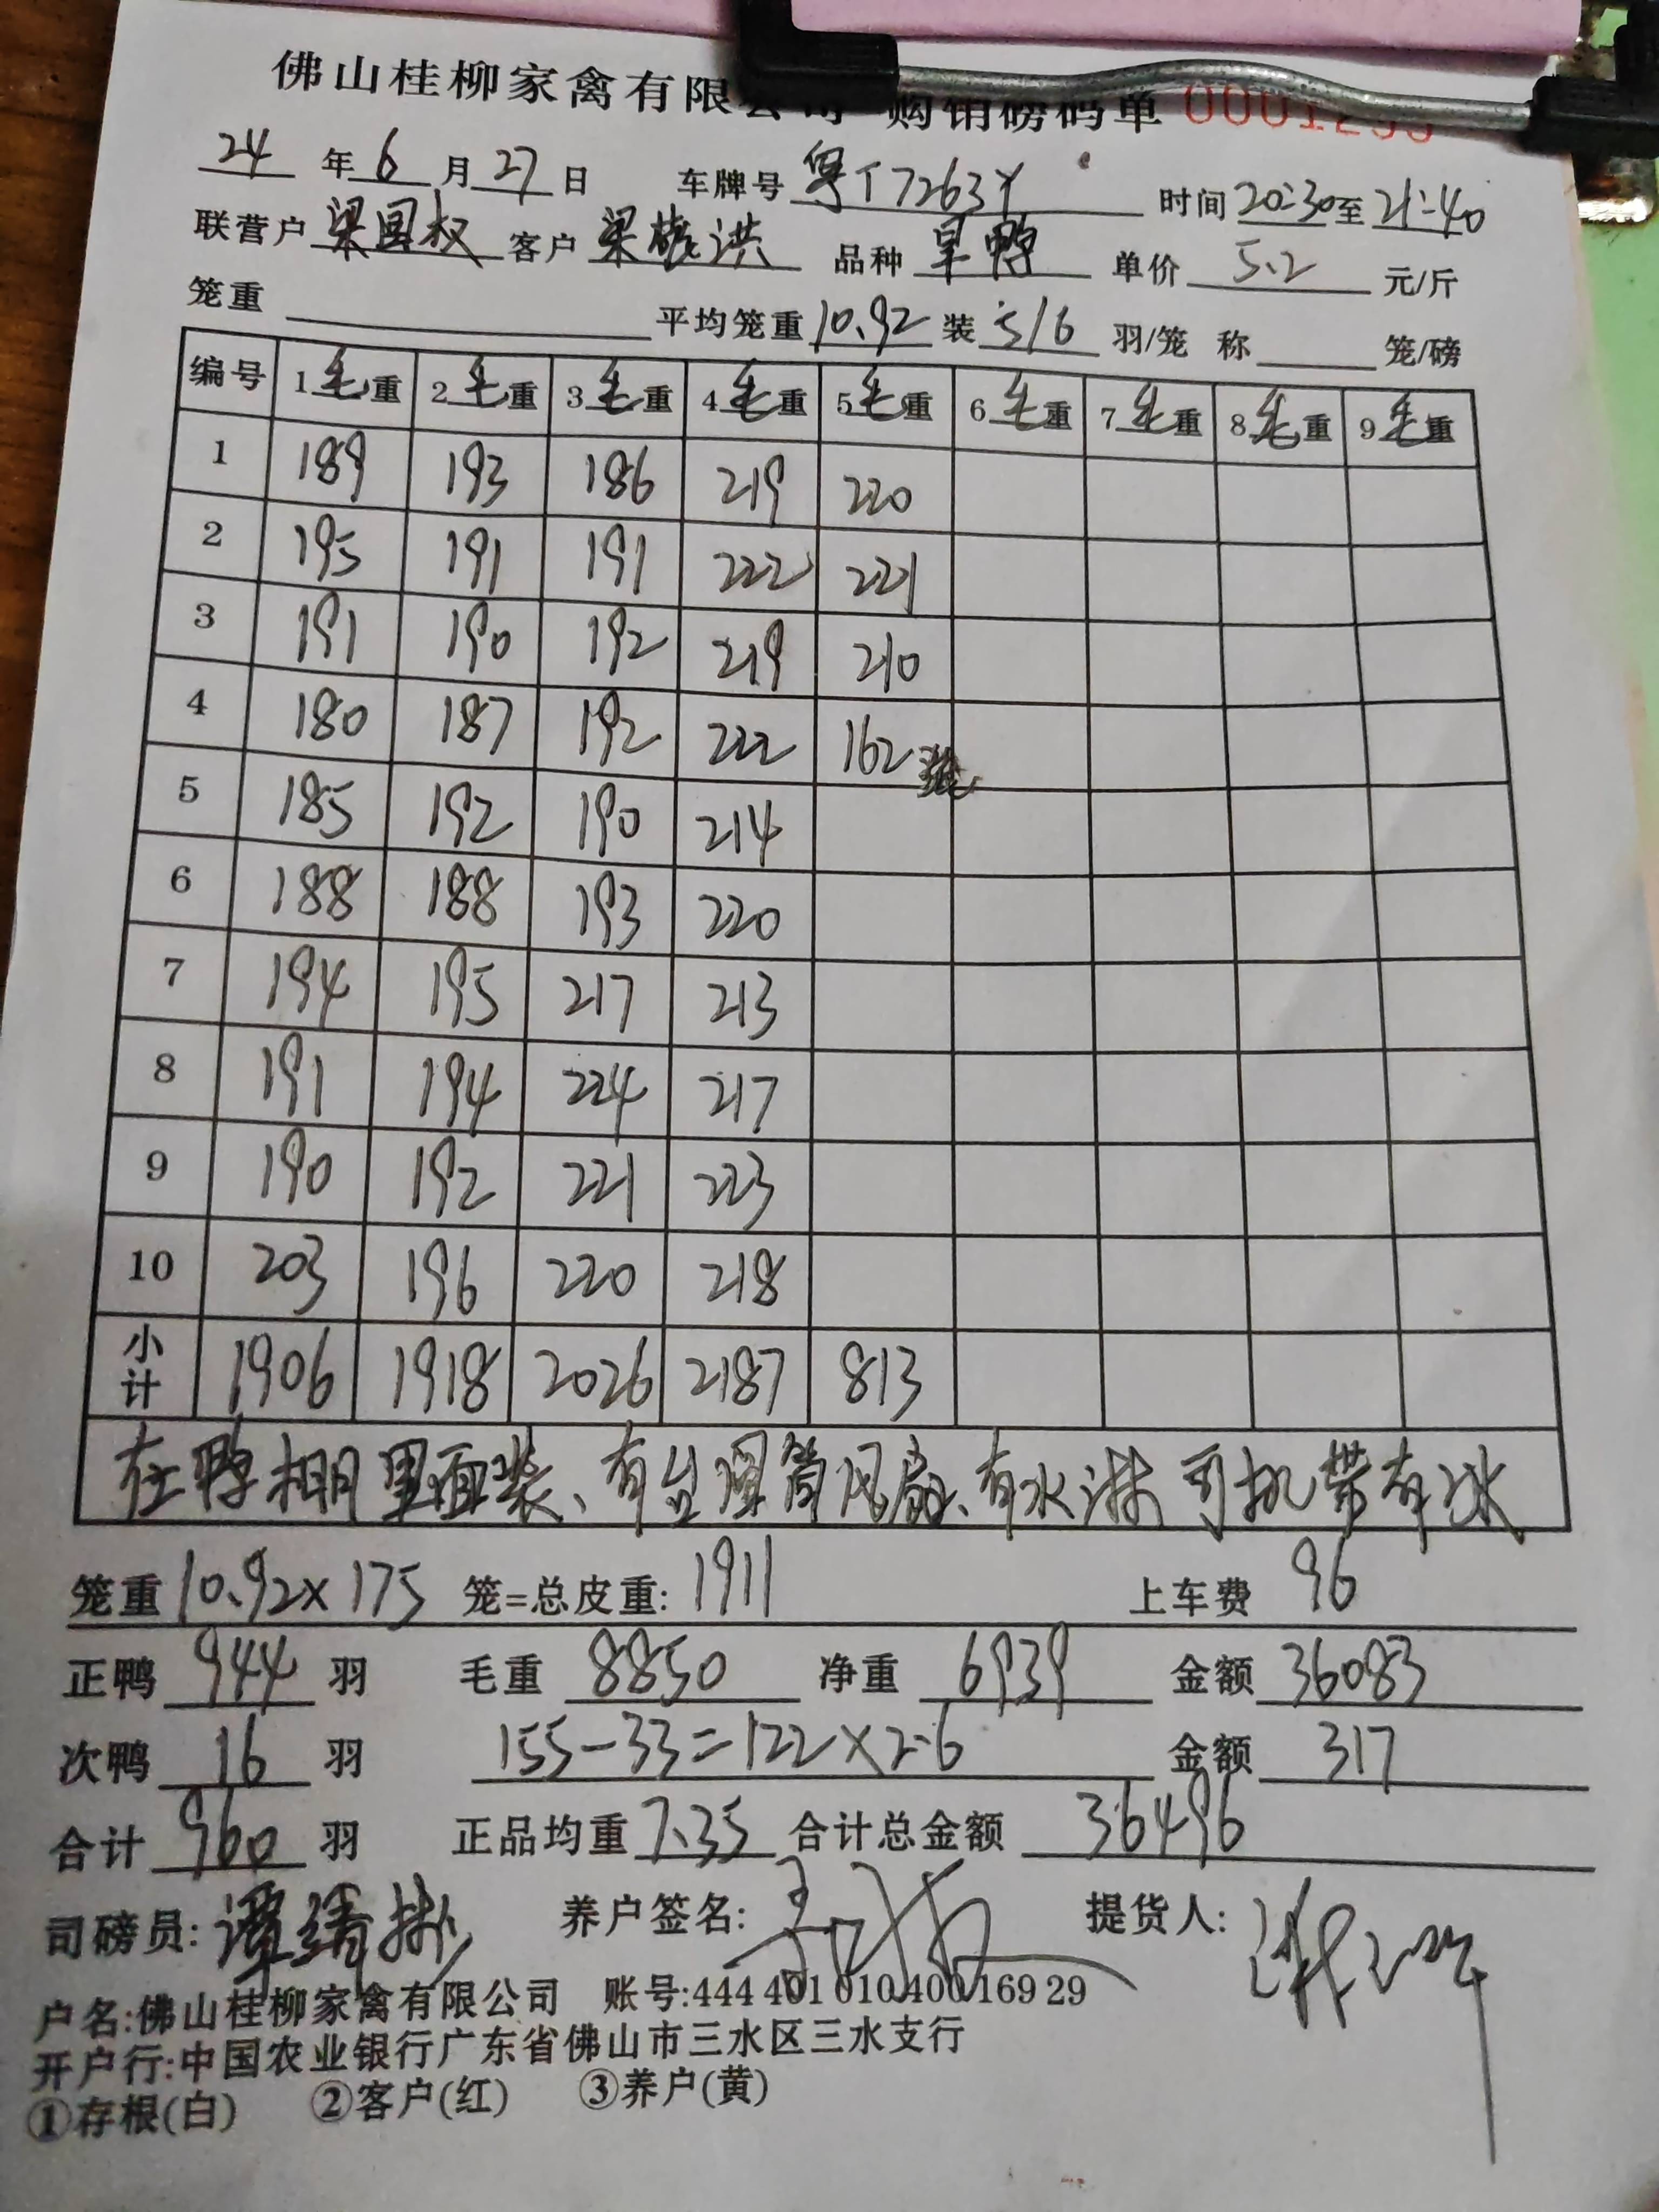 佛山桂柳家禽有限公司 购销磅码单
24年6月27日 车牌号 粤T7263Y 时间20:30至21:40
联营户 梁国权 客户 梁 洪 品种 旱鸭 单价 5.2 元/斤
笼重 平均笼重10.92 装5/6 羽/笼 称 笼/磅
编号 1毛重 2毛重 3毛重 4毛重 5毛重 6毛重 7毛重 8毛重 9毛重
1 189 193 186 219 220
2 195 191 191 222 221
3 191 190 192 219 210
4 180 187 192 222 162
5 185 192 190 214
6 188 188 193 220
7 194 195 217 213
8 191 194 224 217
9 190 192 221 223
10 203 196 220 218
小计 1906 1918 2026 2187 813
在鸭棚里面装、有 筒风扇、有水淋司机带有冰
笼重10.92×175 笼=总皮重:1911 上车费 96
正鸭 944 羽 毛重 8850 净重 6939 金额 36083
次鸭 16 羽 155-33=122×2.6 金额 317
合计 960 羽 正品均重 7.35 合计总金额 36496
司磅员: 谭 养户签名: 提货人:
户名:佛山桂柳家禽有限公司 账号:444 401 010 400 169 29
开户行:中国农业银行广东省佛山市三水区三水支行
①存根(白) ②客户(红) ③养户(黄)